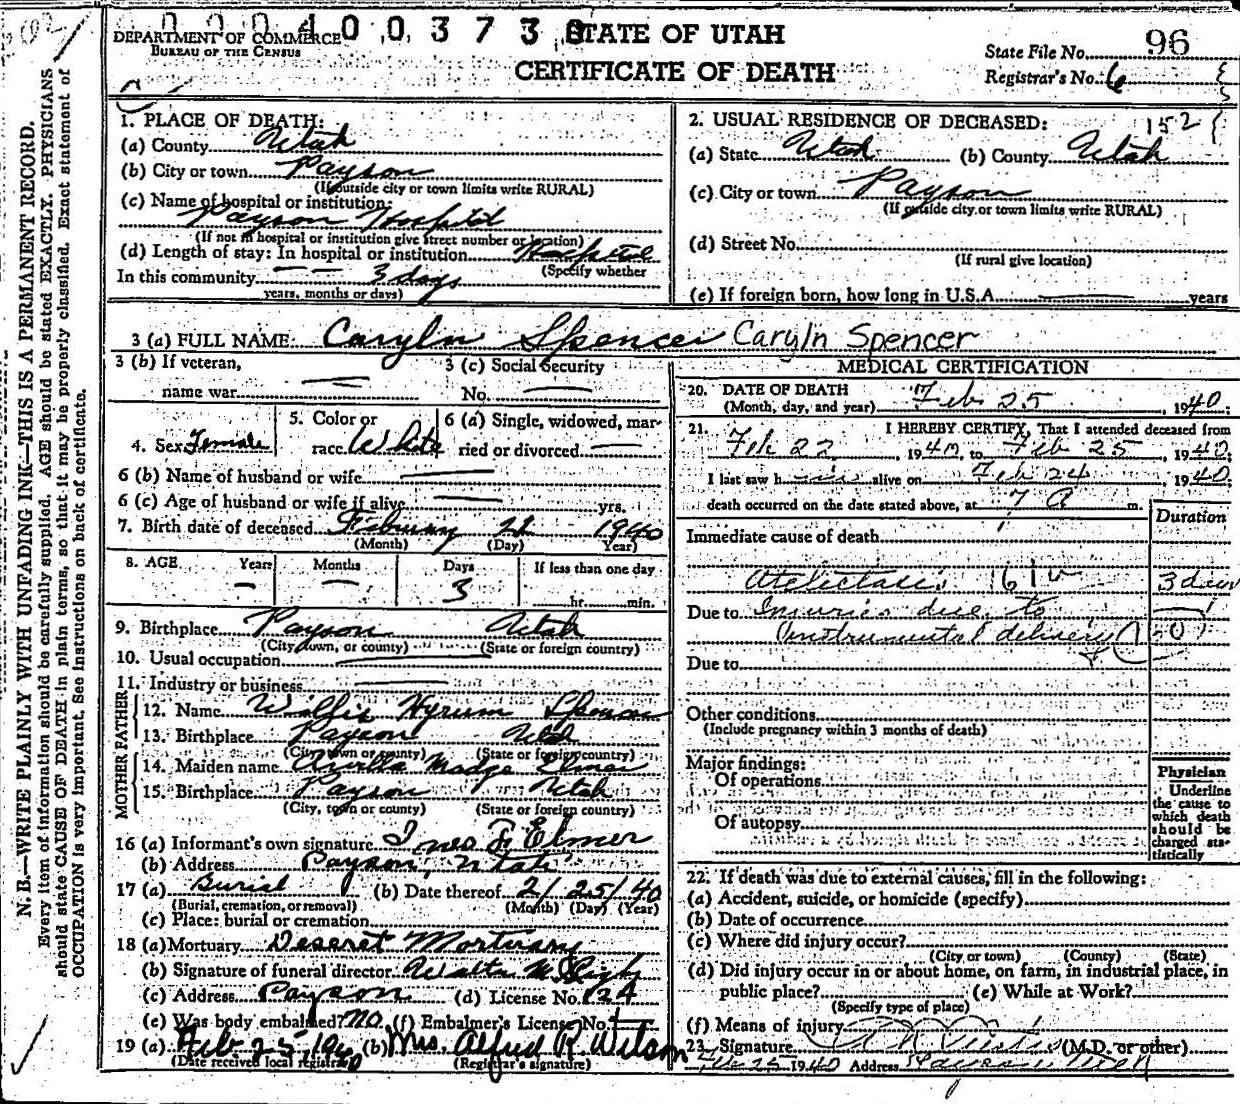 DEPARTMENT OF COMMERCE
BUREAU OF THE CENSUS
STATE OF UTAH
CERTIFICATE OF DEATH
State File No. 96
Registrar's No. 6
N. B.—WRITE PLAINLY WITH UNFADING INK—THIS IS A PERMANENT RECORD.
Every item of information should be carefully supplied. AGE should be stated EXACTLY. PHYSICIANS
should state CAUSE OF DEATH in plain terms, so that it may be properly classified. Exact statement of
OCCUPATION is very important. See instructions on back of certificate.
1. PLACE OF DEATH:
(a) County Utah
(b) City or town Payson
(If outside city or town limits write RURAL)
(c) Name of hospital or institution:
Payson Hospital
(If not in hospital or institution give street number or location)
(d) Length of stay: In hospital or institution Hospital
(Specify whether
In this community 3 days
years, months or days)
2. USUAL RESIDENCE OF DECEASED: 152
(a) State Utah (b) County Utah
(c) City or town Payson
(If outside city or town limits write RURAL)
(d) Street No.
(If rural give location)
(e) If foreign born, how long in U.S.A. years
3 (a) FULL NAME: Caryln Spencer Caryln Spencer
3 (b) If veteran, 3 (c) Social Security
name war No.
4. Sex Female 5. Color or race White 6 (a) Single, widowed, married or divorced
6 (b) Name of husband or wife
6 (c) Age of husband or wife if alive yrs.
7. Birth date of deceased February 22 1940
(Month) (Day) (Year)
8. AGE Years Months Days If less than one day
3 hr. min.
9. Birthplace Payson Utah
(City, town, or county) (State or foreign country)
10. Usual occupation
11. Industry or business
FATHER
12. Name Hyrum Spencer
13. Birthplace Payson Utah
(City, town or county) (State or foreign country)
MOTHER
14. Maiden name Madge Elmer
15. Birthplace Payson Utah
(City, town or county) (State or foreign country)
16 (a) Informant's own signature F. Elmer
(b) Address Payson, Utah
17 (a) Burial (b) Date thereof 2/25/40
(Burial, cremation, or removal) (Month) (Day) (Year)
(c) Place: burial or cremation
18 (a) Mortuary Deseret Mortuary
(b) Signature of funeral director Walter M.
(c) Address Payson (d) License No. 124
(e) Was body embalmed? no (f) Embalmer's License No.
19 (a) Feb 25, 1940 (b) Mrs. Alfred R. Wilson
(Date received local registrar) (Registrar's signature)
MEDICAL CERTIFICATION
20. DATE OF DEATH
(Month, day, and year) Feb 25, 1940;
21. I HEREBY CERTIFY, That I attended deceased from
Feb 22, 1940, to Feb 25, 1940;
I last saw h alive on Feb 24 1940;
death occurred on the date stated above, at 7 A m.
Duration
Immediate cause of death
Atelectasis 161 3 days
Due to Injuries due to
instrumental delivery
Due to
Other conditions
(Include pregnancy within 3 months of death)
Major findings:
Of operations
Of autopsy
Physician
Underline
the cause to
which death
should be
charged sta-
tistically
22. If death was due to external causes, fill in the following:
(a) Accident, suicide, or homicide (specify)
(b) Date of occurrence
(c) Where did injury occur?
(City or town) (County) (State)
(d) Did injury occur in or about home, on farm, in industrial place, in
public place? (e) While at Work?
(Specify type of place)
(f) Means of injury
23. Signature (M.D. or other)
Feb 25 1940 Address Payson Utah